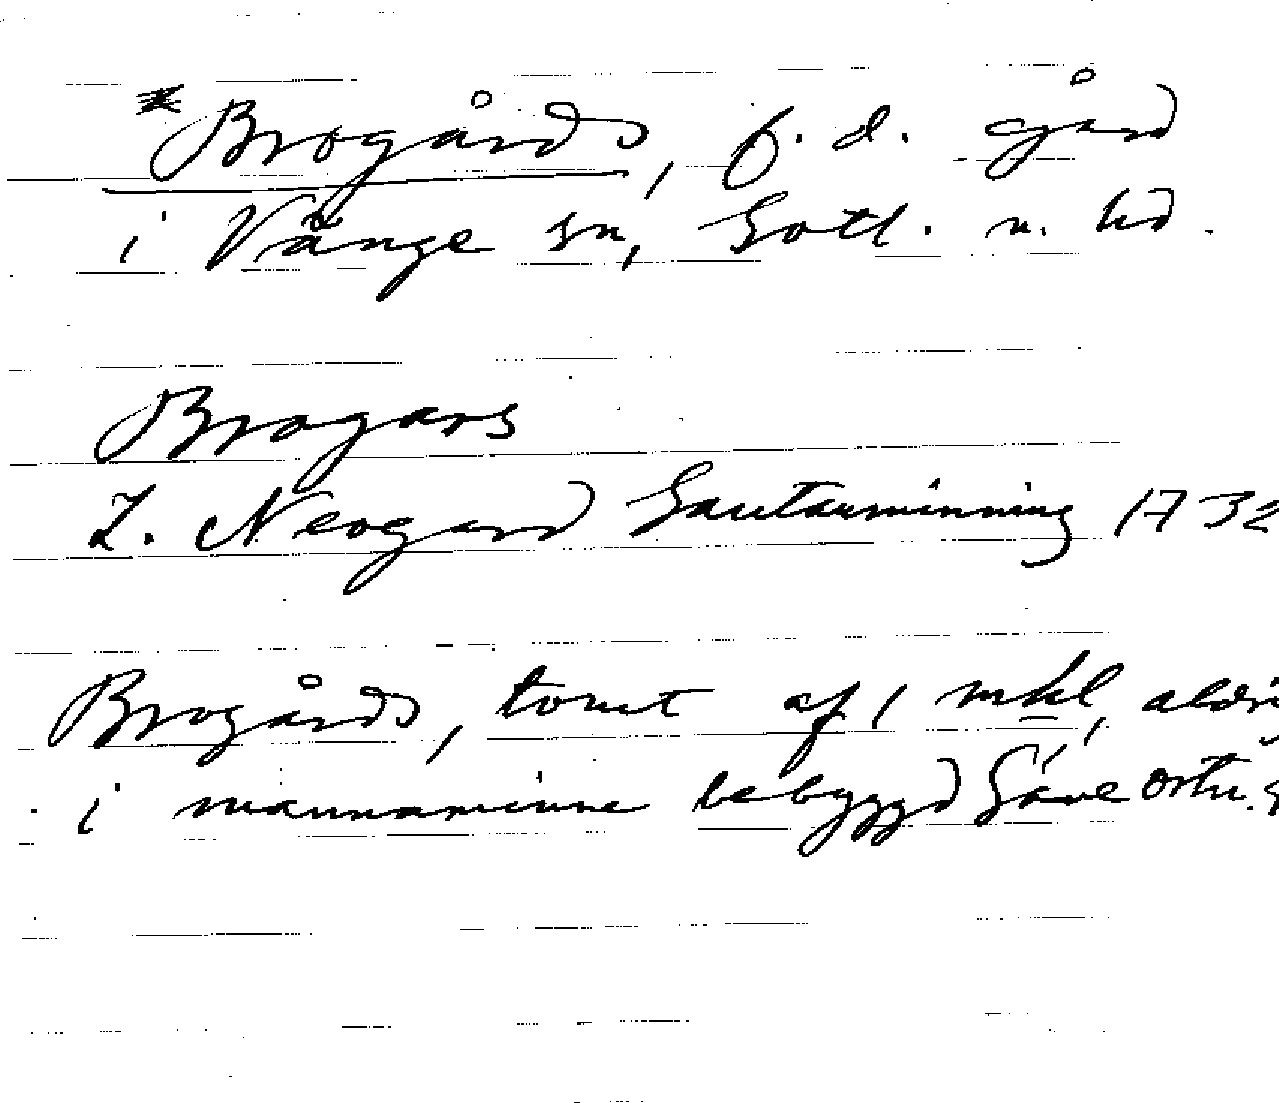 *Brogårds, f. d. gård
i Vänge sn, Gotl. n. hd.
Brogars
Z. Neogard Gautauminning 1732
Brogårds, tomt af 1 mkl, aldri
i mannaminne bebyggd Säve